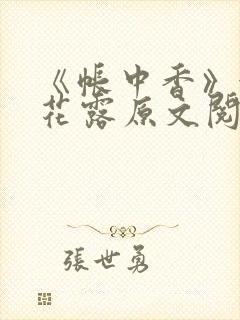 《帳中香》
花露原文閱
張世勇